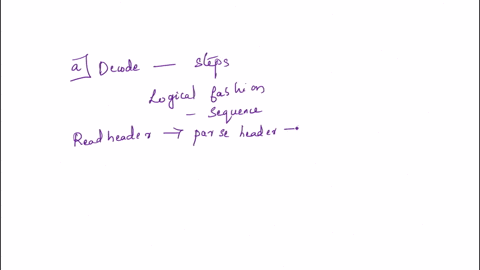 a] Decode — steps
Logical fashion
- sequence
Readheader → parse header →